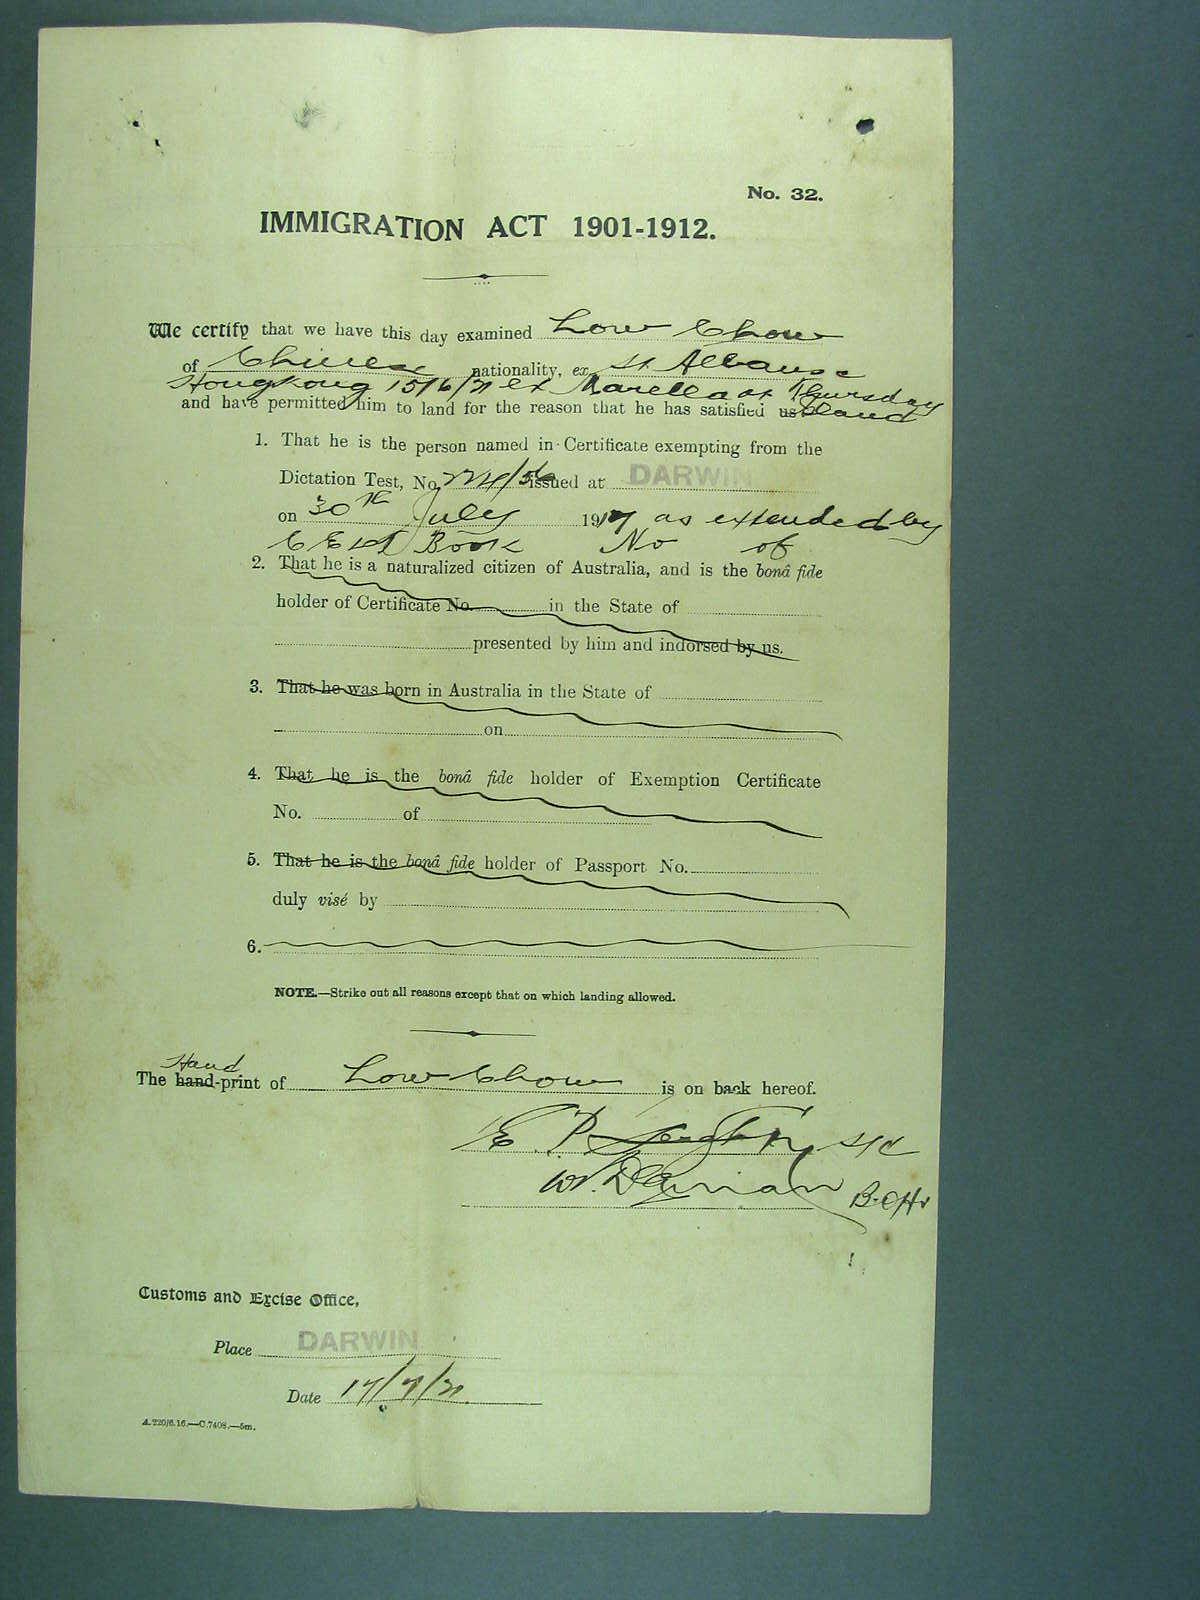 No. 32.
IMMIGRATION ACT 1901-1912.
We certify that we have this day examined Low Chow
of Chinese nationality, ex St Albans c
Hongkong 15/6/21 ex Marella at Thursday
and have permitted him to land for the reason that he has satisfied us Island
1. That he is the person named in Certificate exempting from the
Dictation Test, No. issued at DARWIN
on 30TH July 1917 as extended by
Book No of
2. That he is a naturalized citizen of Australia, and is the bonâ fide
holder of Certificate No. in the State of
presented by him and indorsed by us.
3. That he was born in Australia in the State of
on
4. That he is the bonâ fide holder of Exemption Certificate
No. of
5. That he is the bonâ fide holder of Passport No.
duly visé by
6.
NOTE.—Strike out all reasons except that on which landing allowed.
Hand
The hand-print of Low Chow is on back hereof.
E. P.
W.
Customs and Excise Office,
Place DARWIN
Date 17/7/21
A.220/6.16.—C.7408.—5m.